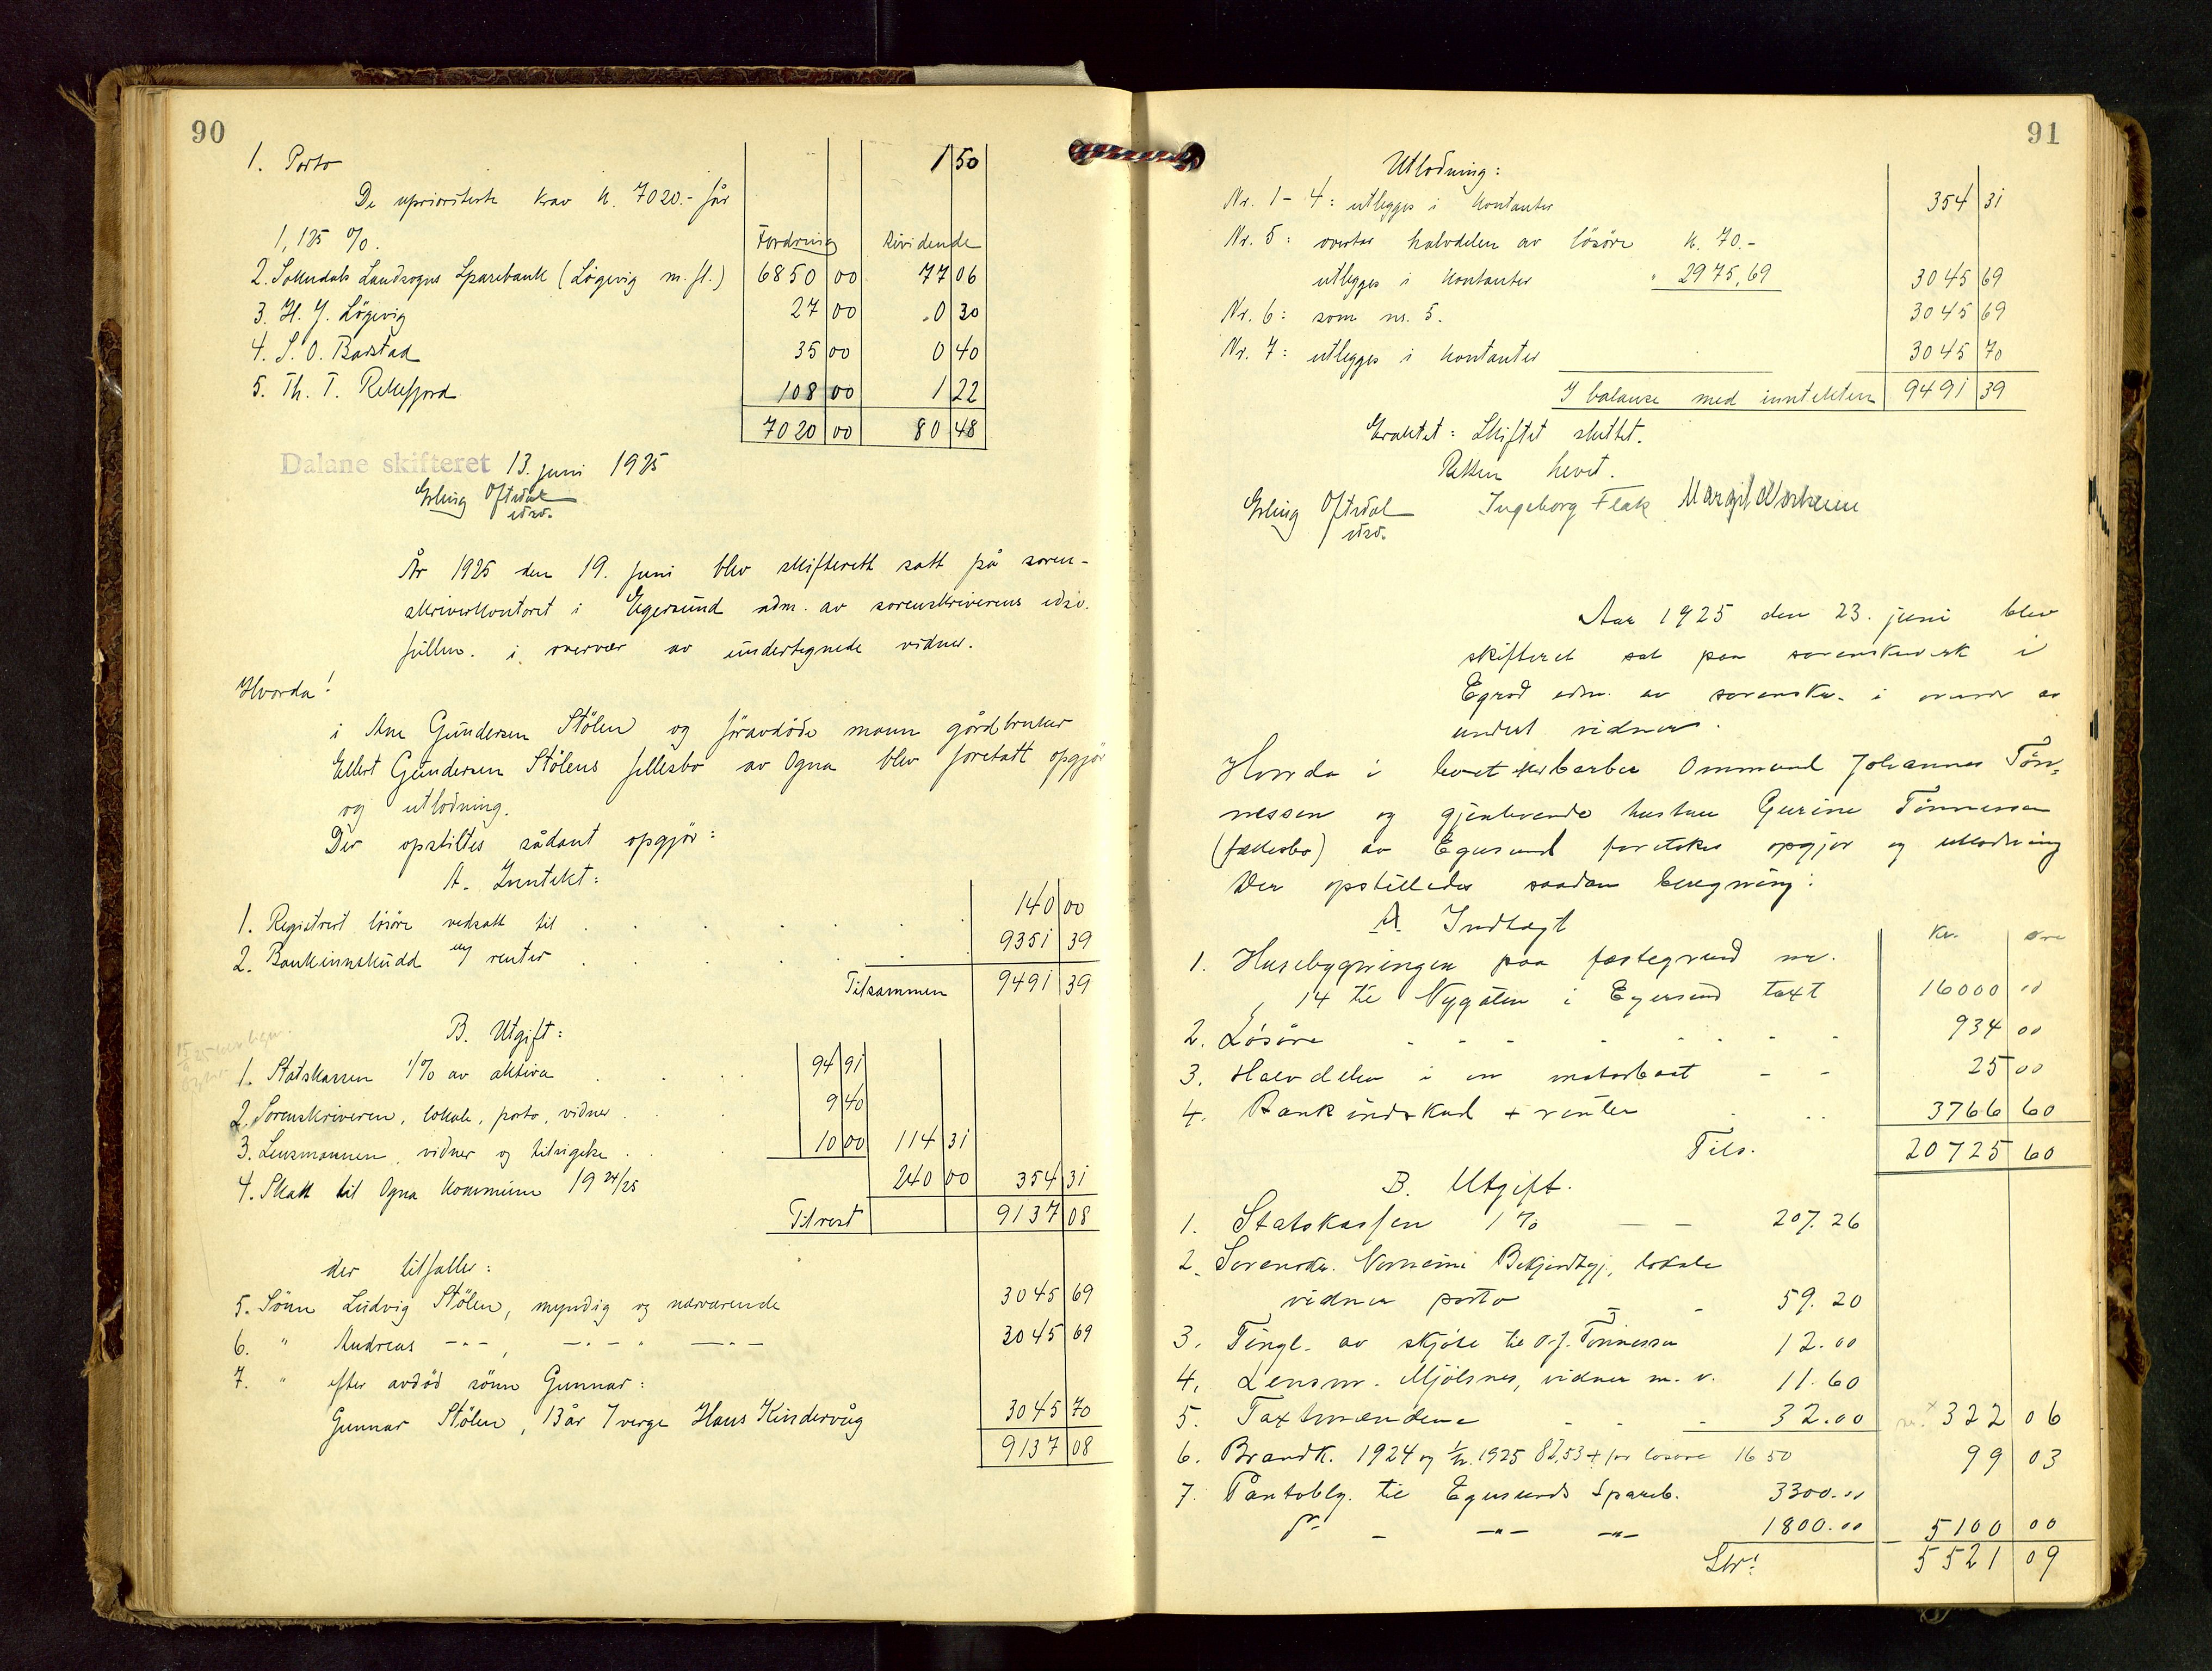 90
1. Porto 1 50
De uprioriterte krav kr. 7020.- får
1,125 %. Fordring Dividende
2. Sokndals Landsogns Sparebank (Lögevig m. fl.) 6850 00 77 06
3. H. Y. Lögevig 27 00 0 30
4. S. O. Barstad 35 00 0 40
5. Th. T. Rekefjord 108 00 1 22
7020 00 80 48
Dalane skifteret 13. juni 1925
Erling Oftedal
edsv.
År 1925 den 19. juni blev skifterett satt på soren-
skriverkontoret i Egersund adm. av sorenskriverens edsv.
fullm. i overvær av undertegnede vidner.
Hvorda!
i Ane Gundersen Stölen og föravdöde mann gårdbruker
Ellert Gundersen Stölens fellesbo av Ogna blev foretatt opgjör
og utlodning.
Der opstiltes sådant opgjör:
A. Inntekt:
1. Registrert lösöre verdsatt til 140 00
2. Bankinnskudd m/ renter 9351 39
Tilsammen 9491 39
B. Utgift:
1. Statskassen 1% av aktiva 94 91
2. Sorenskriveren, lokale, porto, vidner 9 40
3. Lensmannen, vidner og tilsigelse 10 00 114 31
4. Skatt til Ogna kommune 19 24/25 240 00 354 31
Til rest 9137 08
der tilfaller:
5. Sönn Ludvig Stölen, myndig og nærværende 3045 69
6. " Andreas -"- , -"- " -"- 3045 69
7. " efter avdöd sönn Gunnar:
Gunnar Stölen, 13 år / verge Hans Kindervåg 3045 70
9137 08
91
Utlodning:
Nr. 1-4: utlegges i kontanter 354 31
Nr. 5: overtar halvdelen av lösöre kr. 70.-
utlegges i kontanter " 2975,69 3045 69
Nr. 6: som nr. 5. 3045 69
Nr. 7: utlegges i kontanter 3045 70
I balanse med inntekten 9491 39
Eraktet: Skiftet sluttet.
Retten hevet.
Erling Oftedal Ingeborg Fleak Margit
edsv.
Aar 1925 den 23. juni blev
skifteret sat paa sorenskverk i
Egrsd adm. av sorenskr. i overvær av
undert vidner.
Hvorda i boet efter barber Ommund Johannes Tön-
nessen og gjenlevende hustru Gurine Tönnessen
(fællesbo) av Egersund foretokes opgjør og utlodning
Der opstilledes saadan beregning:
A Indtægt
kr. øre
1. Husebygningen paa festegrund nr.
14 til Nygaten i Egersund taxt 16000 00
2. Løsøre 934 00
3. Halvdelen i en motorbaat 25 00
4. Bankindskud + renter 3766 60
Tils. 20725 60
B. Utgift.
1. Statskassen 1% 207.26
2. Sorenskr. Bekjendtgj, lokale
vidner porto 59.20
3. Tingl. av skjøte til O. J. Tönnessen 12.00
4. Lensm. Mjölsnes, vidner m. v. 11.60
5. Taxtmændene 32.00 322 06
6. Brandk. 1924 og 1/2 1925 82,53 + for løsøre 16 50 99 03
7. Pantoblg. til Egersunds Spareb. 3300.00
do - -"- -"- 1800.00 5100 00
5521 09